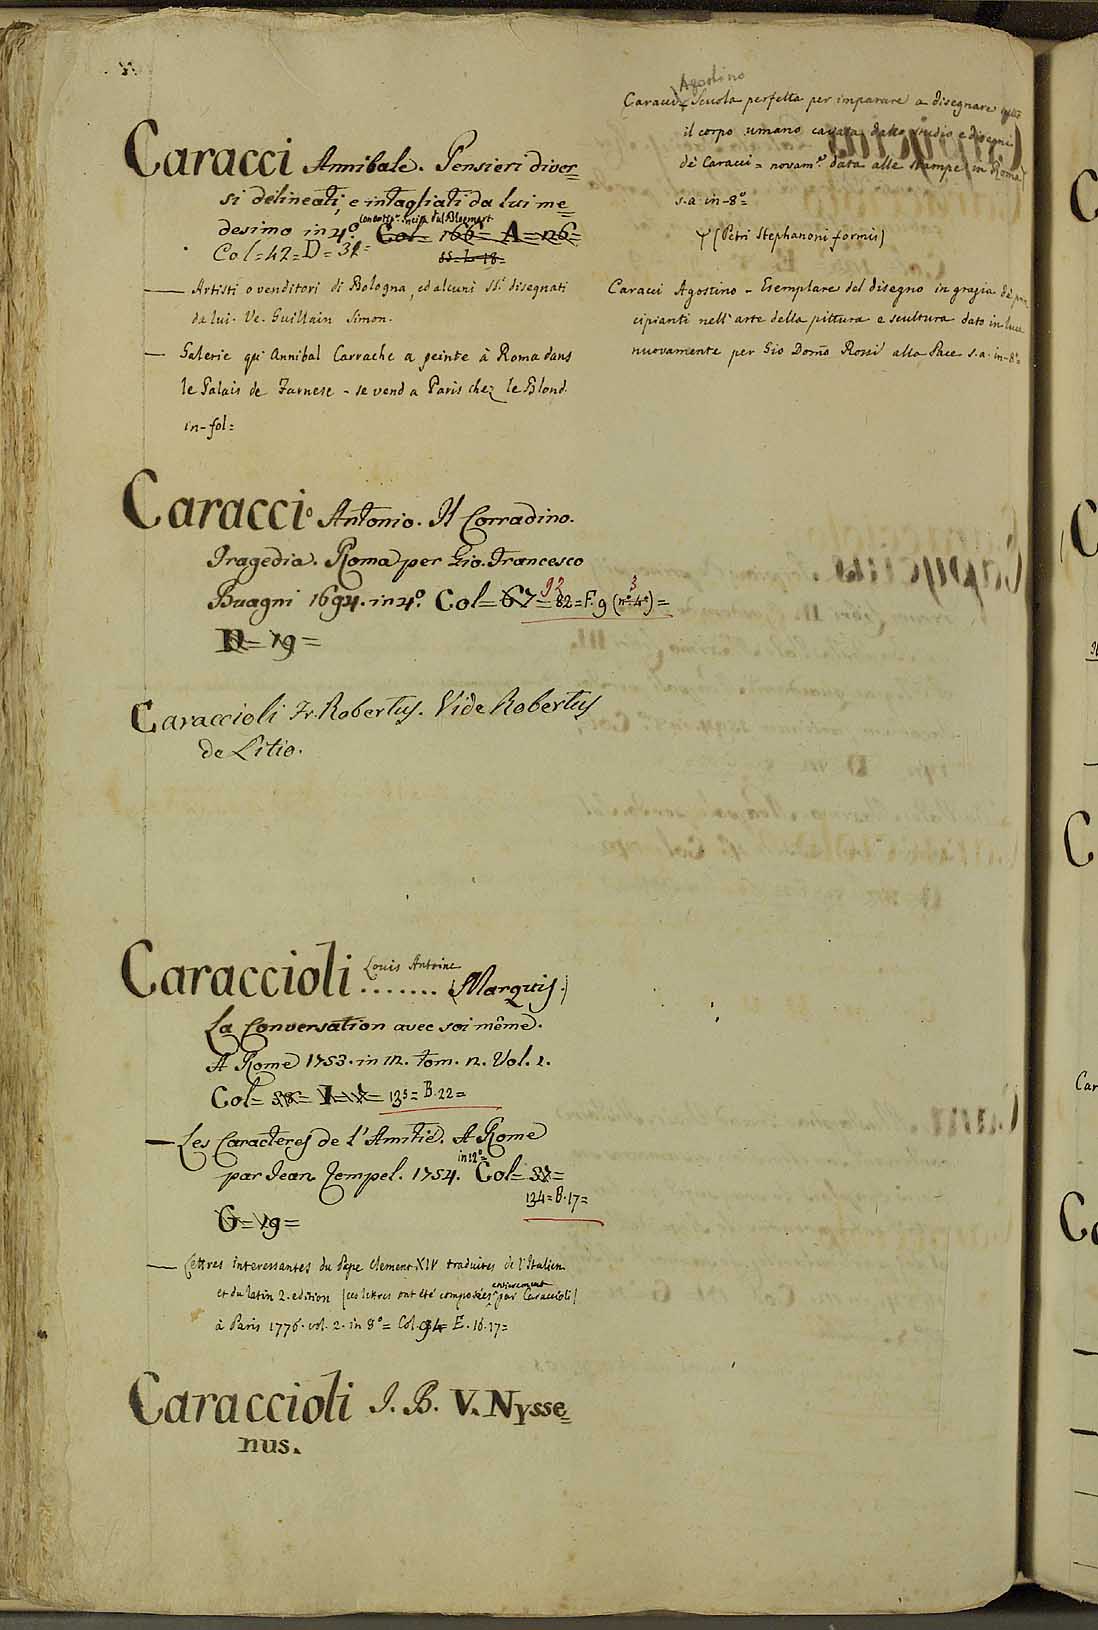 Caracci Annibale. Pensieri diver=
si delineati, e intagliati da lui me=
desimo in 4.º Col= 166= A= n6=
Col=42=D=32=
Artisti o venditori di Bologna, ed alcuni SS.i disegnati
da lui. Ve. Guillain Simon.
Galerie qu'Annibal Carrache a peinte à Roma dans
le Palais de Farnese - se vend a Paris chez le Blond
in-fol=
Caracci Antonio. Il Corradino.
Tragedia. Roma per Gio. Francesco
Buagni 1694. in 4.º Col= 67= 92 82=F.9 (nº 4º) 3 =
D= 19=
Caraccioli Fr. Robertus. Vide Robertus
de Litio.
Caraccioli ....... Louis Antoine (Marquis.)
La Conversation avec soi même.
A Rome 1753. in 12. tom. 2. Vol. 1.
Col= 38= I= 135= B.22=
Les Caracteres de l'Amitié. A Rome
par Jean Zempel. 1754. in 12º= Col= 37=
134=B.17=
G= 19=
Lettres interessantes du Pape Clement XIV traduites de l'Italien
et du latin 2. edition (ces lettres ont été composées entierement par Caraccioli)
à Paris 1776. vol. 2. in 8º= Col. 94 E. 16.17=
Caraccioli J. B. V. Nysse=
nus.
Agostino
Caracci Scuola perfetta per imparare a disegnare tutto
il corpo umano cavata dallo studio e disegni
de Caracci = novam.e data alle stampe (in Roma)
s.a. in-8º=
(Petri Stephanoni formis)
Caracci Agostino - Esemplare del disegno in grazia de prin
cipianti nell'arte della pittura e scultura dato in luce
nuovamente per Gio Dom̃o Rossi alla Pace s.a. in-8º=